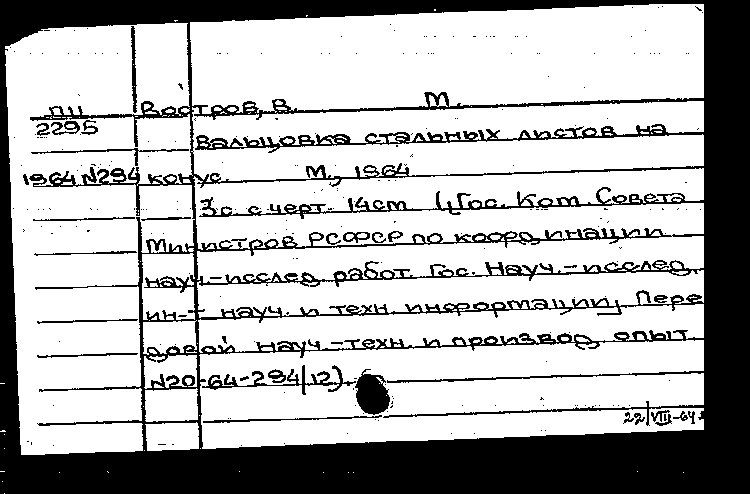 ПШ Востров, В. М.
2295
Вальцовка стальных листов на
1964 N294 конус. М., 1964
3с. с черт. 14см (Гос. Ком. Совета
Министров РСФСР по координации
науч.-исслед. работ. Гос. Науч.-исслед.
ин-т науч. и техн. информации, Пере
довой науч.-техн. и производ. опыт
N20-64-294/12).
22/VIII-64